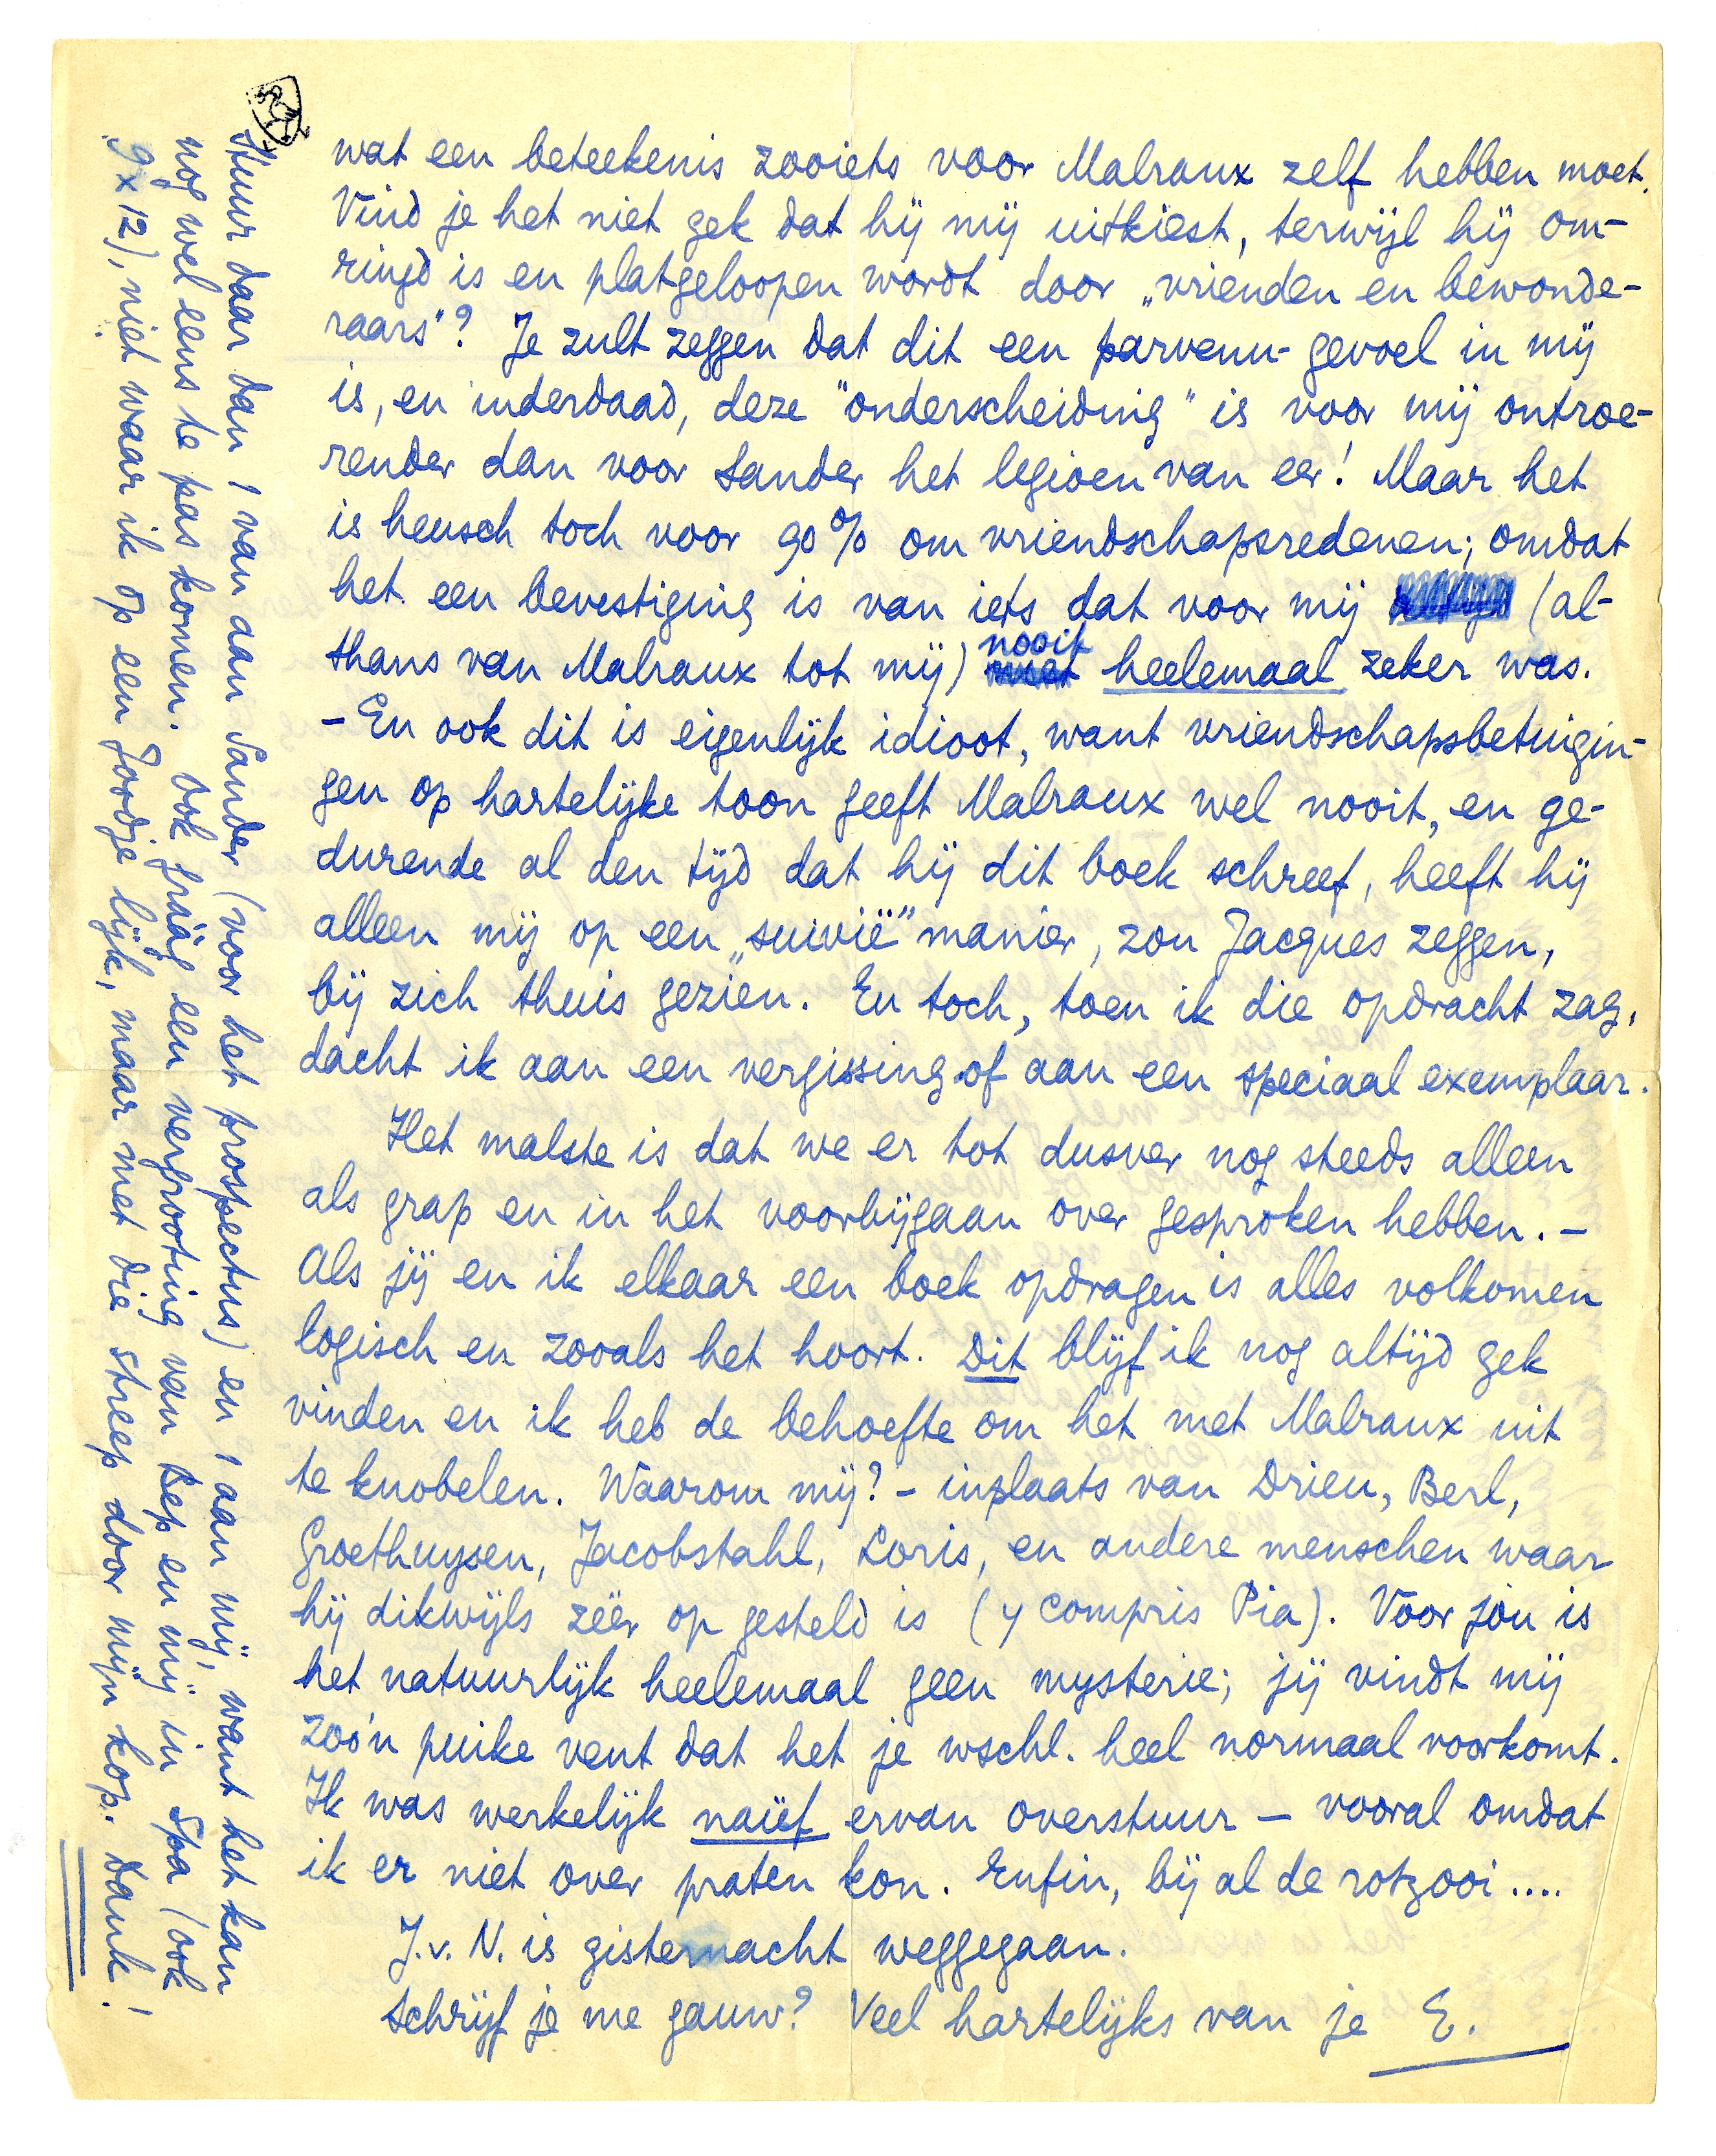 wat een beteekenis zooiets voor Malraux zelf hebben moet.
Vind je het niet gek dat hij mij uitkiest, terwijl hij om-
ringd is en platgeloopen wordt door „vrienden en bewonde-
raars"? Je zult zeggen dat dit een parvenu-gevoel in mij
is, en inderdaad, deze "onderscheiding" is voor mij ontroe-
render dan voor Sander het legioen van eer! Maar het
is heusch toch voor 90% om vriendschapsredenen; omdat
het een bevestiging is van iets dat voor mij (al-
thans van Malraux tot mij) nooit heelemaal zeker was.
– En ook dit is eigenlijk idioot, want vriendschapsbetuigin-
gen op hartelijke toon geeft Malraux wel nooit, en ge-
durende al den tijd dat hij dit boek schreef, heeft hij
alleen mij op een „suivië" manier, zou Jacques zeggen,
bij zich thuis gezien. En toch, toen ik die opdracht zag,
dacht ik aan een vergissing of aan een speciaal exemplaar.
Het malste is dat we er tot dusver nog steeds alleen
als grap en in het voorbijgaan over gesproken hebben. –
Als jij en ik elkaar een boek opdragen is alles volkomen
logisch en zooals het hoort. Dit blijf ik nog altijd gek
vinden en ik heb de behoefte om het met Malraux uit
te knobelen. Waarom mij? – inplaats van Drieu, Berl,
Groethuysen, Jacobstahl, Loris, en andere menschen waar
hij dikwijls zéér op gesteld is (y compris Pia). Voor jou is
het natuurlijk heelemaal geen mysterie; jij vindt mij
zoo'n puike vent dat het je wschl. heel normaal voorkomt.
Ik was werkelijk naïef ervan overstuur – vooral omdat
ik er niet over praten kon. Enfin, bij al de rotzooi....
J.v.N. is gisternacht weggegaan.
Schrijf je me gauw? Veel hartelijks van je E.
Stuur daar dan 1 van aan Sander (voor het prospectus) en 1 aan mij, want het kan
nog wel eens te pas komen. Ook gráág een vergrooting van Bep en mij in Spa (ook
9 x 12), niet waar ik op een Joodje lijk, maar met die streep door mijn kop. Dank!